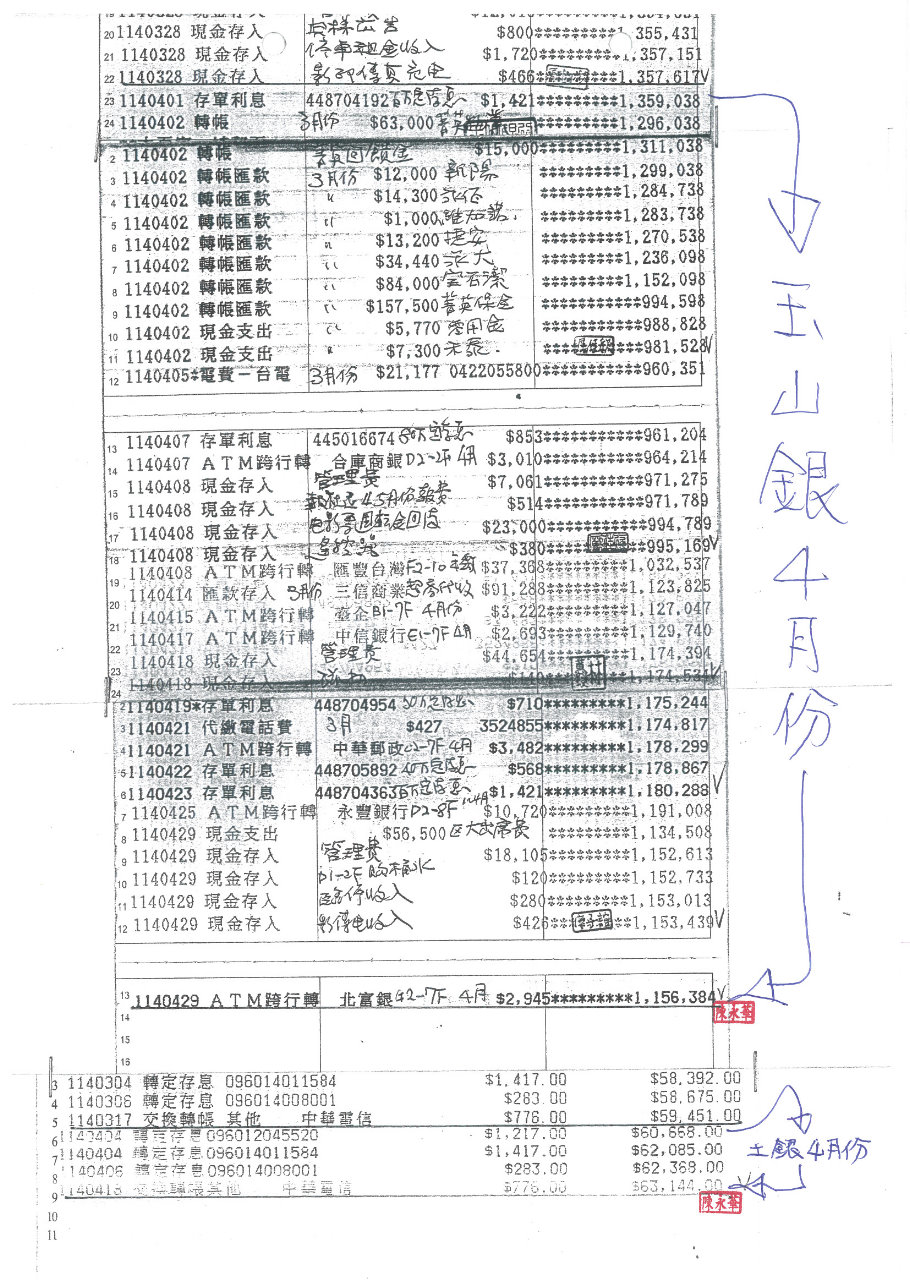 20 1140328 現金存入 $800*********1,355,431
21 1140328 現金存入 停車租金收入 $1,720*********1,357,151
22 1140328 現金存入 $466*********1,357,617
23 1140401 存單利息 448704192 $1,421*********1,359,038
24 1140402 轉帳 3月份 $63,000 菁英 *********1,296,038
2 1140402 轉帳 $15,000*********1,311,038
3 1140402 轉帳匯款 3月份 $12,000 *********1,299,038
4 1140402 轉帳匯款 〃 $14,300 *********1,284,738
5 1140402 轉帳匯款 〃 $1,000 *********1,283,738
6 1140402 轉帳匯款 〃 $13,200 捷安 *********1,270,538
7 1140402 轉帳匯款 〃 $34,440 *********1,236,098
8 1140402 轉帳匯款 〃 $84,000 宝石潔 *********1,152,098
9 1140402 轉帳匯款 〃 $157,500 菁英保全 ***********994,598
10 1140402 現金支出 〃 $5,770 零用金 ***********988,828
11 1140402 現金支出 〃 $7,300 ***********981,528
12 1140405*電費一台電 3月份 $21,177 0422055800***********960,351
13 1140407 存單利息 445016674 $853***********961,204
14 1140407 ATM跨行轉 合庫商銀 D2-2F 4月 $3,010***********964,214
15 1140408 現金存入 管理費 $7,061***********971,275
16 1140408 現金存入 $514***********971,789
17 1140408 現金存入 $23,000***********994,789
18 1140408 現金存入 $380***********995,169
19 1140408 ATM跨行轉 匯豐台灣 F2-10 $37,368*********1,032,537
20 1140414 匯款存入 3月份 三信商業 $91,288*********1,123,825
21 1140415 ATM跨行轉 臺企 B1-7F 4月份 $3,222*********1,127,047
22 1140417 ATM跨行轉 中信銀行 E1-7F 4月 $2,693*********1,129,740
23 1140418 現金存入 管理費 $44,654*********1,174,394
24 1140418 現金存入 $140*********1,174,534
2 1140419*存單利息 448704954 $710*********1,175,244
3 1140421 代繳電話費 3月 $427 3524855*********1,174,817
4 1140421 ATM跨行轉 中華郵政 4月 $3,482*********1,178,299
5 1140422 存單利息 448705892 $568*********1,178,867
6 1140423 存單利息 448704363 $1,421*********1,180,288
7 1140425 ATM跨行轉 永豐銀行 D2-8F $10,720*********1,191,008
8 1140429 現金支出 $56,500 區大出席費 *********1,134,508
9 1140429 現金存入 管理費 $18,105*********1,152,613
10 1140429 現金存入 $120*********1,152,733
11 1140429 現金存入 臨停收入 $280*********1,153,013
12 1140429 現金存入 $426*********1,153,439
13 1140429 ATM跨行轉 北富銀 4月 $2,945*********1,156,384
14
15
16
玉山銀4月份
陳永華
3 1140304 轉定存息 096014011584 $1,417.00 $58,392.00
4 1140306 轉定存息 096014008001 $283.00 $58,675.00
5 1140317 交換轉帳 其他 中華電信 $776.00 $59,451.00
6 1140404 轉定存息 096012045520 $1,217.00 $60,668.00
7 1140404 轉定存息 096014011584 $1,417.00 $62,085.00
8 1140406 轉定存息 096014008001 $283.00 $62,368.00
9 1140418 交換轉帳其他 中華電信 $776.00 $63,144.00
10
11
土銀4月份
陳永華